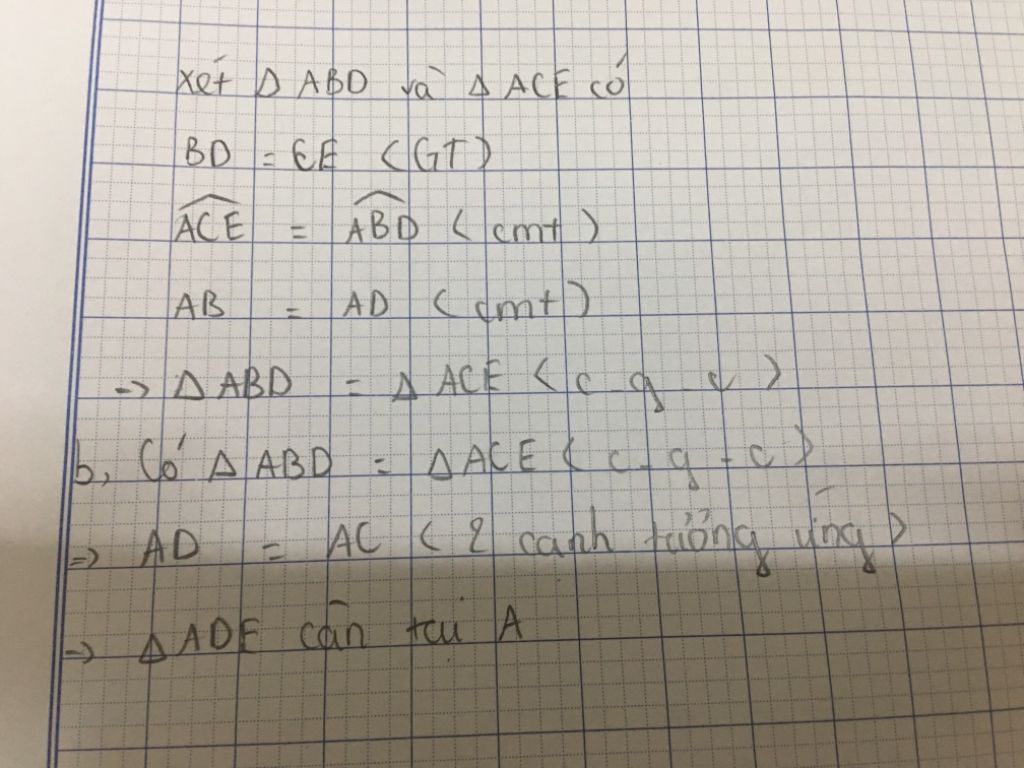 Xét Δ ABD và Δ ACE có
BD = CE (GT)
\widehat{ACE} = \widehat{ABD} (cmt)
AB = AD (cmt)
-> Δ ABD = Δ ACE (c g c)
b, Có Δ ABD = Δ ACE (c-g-c)
=> AD = AC (2 cạnh tương ứng)
-> Δ ADE cân tại A